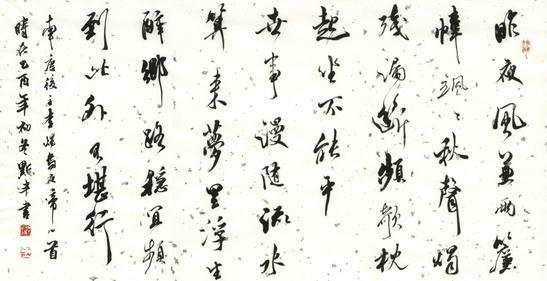 昨夜風兼雨簾
幃颯〻秋聲燭
殘漏斷頻欹枕
起坐不能平
世事謾隨流水
算來夢里浮生
醉鄉路穩宜頻
到此外不堪行
南唐後主李煜烏夜啼一首
時在乙酉年初冬 書